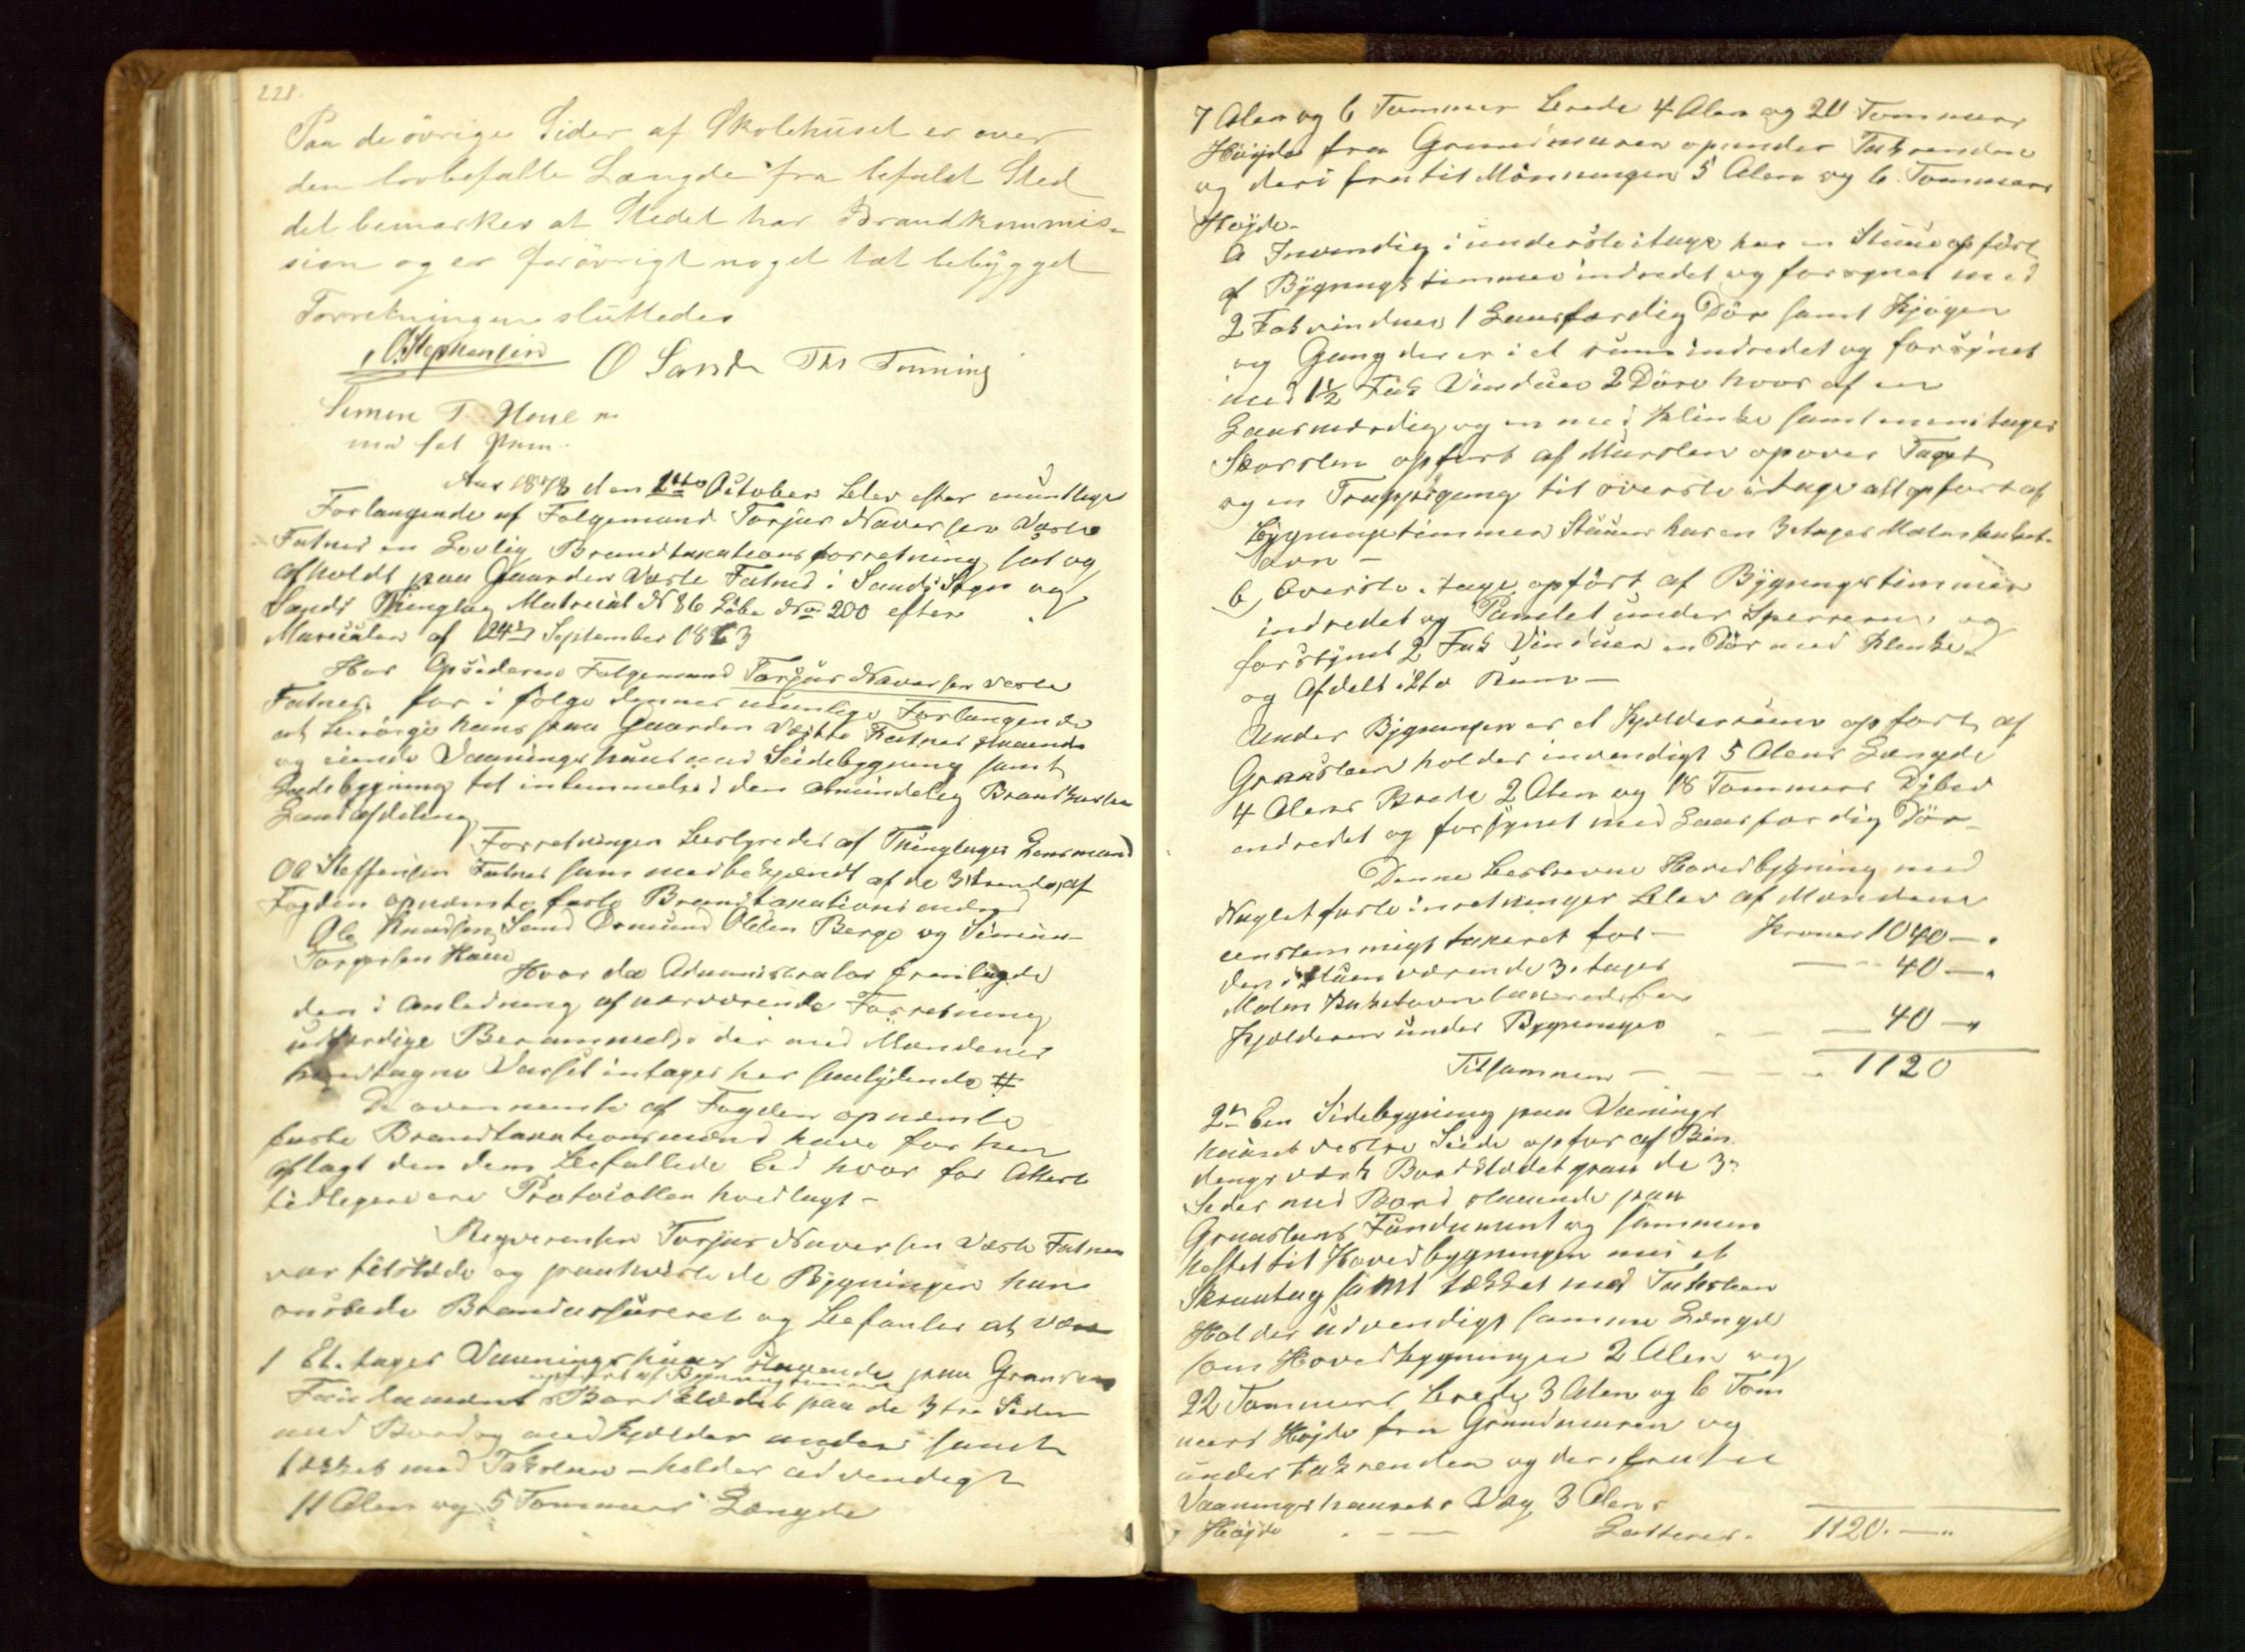 228.
Paa de øvrige Sider af Skolehuset er over
den lovbefalte Længde fra befalet Sted
det bemærkes at Stedet har Brandkommis-
sion og er forøvrigt noget tæt bebygget
Forretningen sluttedes
O. Stephensen O Sand Ths Tonning
Simon T. Houe
med ført Pen.
Aar 1878 den 1ste October blev efter mundtlige
Forlangende af Folgemand Torjus Naversen Væste
Fatnes en Lovlig Brandtaxations forretning sat og
afholdt paa Gaarden Væste Fatnes i Sands Sogn og
Sands Thinglag Matricul No 86 Løbe No 200 efter
Matriculen af 24de September 1863
Har Opsideren Folgemand Torjus Naversen Væste
Fatnes for i følge dennes mundlige Forlangende
at besørge hans paa Gaarden Væste Fatnes staaende
og eiende Vaaningshuus med Sidebygning samt
Sidebygning til indlemmelse i den almindelig Brandkasse
Landafdeling
Forretningen bestyredes af Thinglagets Lensmand
Ole Steffensen Fatnes som medbekjendt af de 3 trende, af
Fogden opnævnte faste Brandtaxationsmænd
Ole Knudsen Sand Osmund Olsen Berge og Simon
Torgersen Houe
Hvor da Administrator fremlagde
den i Anledning af nærværende Forretning
udfærdige Berammelse der med Mændenes
Varsel intages her saalydende #
De ovennævnte af Fogden opnævnte
faste Brandtaxationsmænd have for hen
aflagt den dem befallede Eed hvor for Attest
tidligere ere Protocollen hvedlagt -
Reqverenten Torjus Naversen Væste Fatnes
var tilstæde og paaviste de Bygninger han
ønskede Brandassureret og befantes at være
1 Et. tages Vaaningshuus staaende paa Graasteens
opført af Bygningstømmer
Fundament Bordklædet paa de 3tre Sider
med Bord og med Kjelder under samt
tækket med Taksteen - holder udvendigt
11 Alen og 5 Tommers Længde
7 Alen og 6 Tommer brede 4 Alen og 20 Tommers
Høyde fra Grundmuren op under Takrenden
og deri fra til Mønningen 5 Alen og 6 Tommers
Høyde.
a Invendig i underste itage har en Stuue opført
af Bygnings tømmer indredet og forsynet med
2 Fak vinduer 1 Laasfærdig Dør samt Kjøgen
og Gang der er i et rum indredet og forsynet
med 1½ Fak Vinduer 2 Døre hvor af en
Laasværdig og en med Klinke samt en itages
Skorsten opført af Mursten op over Taget
og en Trappegang til øverste itage alt opført af
bygningstømmer Stuuen har en 3 etages Malm kakel-
ovn -
b, øverste itage opført af Bygningstømmer
indredet og Panelet under Sperrerne og
forsynet 2 Fak Vinduer en Dør med Klinke
og Afdelt i 2to Rum -
Under Bygningen er et Kjelderrum opført af
Graasteen holder invendigt 5 Alens Længde
4 Alens Brede 2 Alen og 18 Tommers Dybde
indredet og forsynet med Laasfærdig Dør -
Denne beskrevne Hovedbygning med
Naglet faste inretninger blev af Mændene
eenstemmigt taxeret for - Kroner 1040 - .
den i Stuen værende 3. tages — 40 - „
Malm Kakelovn taxeredes for
Kjelderen under Bygningen — 40 - „
Tilsammen — 1120
2n En Sidebygning paa Vanings
huuset vestre Side opført af Bin
dings værk Bordklædet paa de 3n
Sider med Bord staaende paa
Graasteens Fundament og sammen
heftet til Hovedbygningen med et
Skraatag samt tækket med Taksteen
Holder udvendigt samme Længde
som Hovedbygningen 2 Alen og
22 Tommers brede 3 Alen og 6 Tom
mers Høyde fra Grundmuren og
under takrenden og deri fra til
Vaaningshuusets Væg 3 Alens
Høyde . — — Latteres. 1120. — „